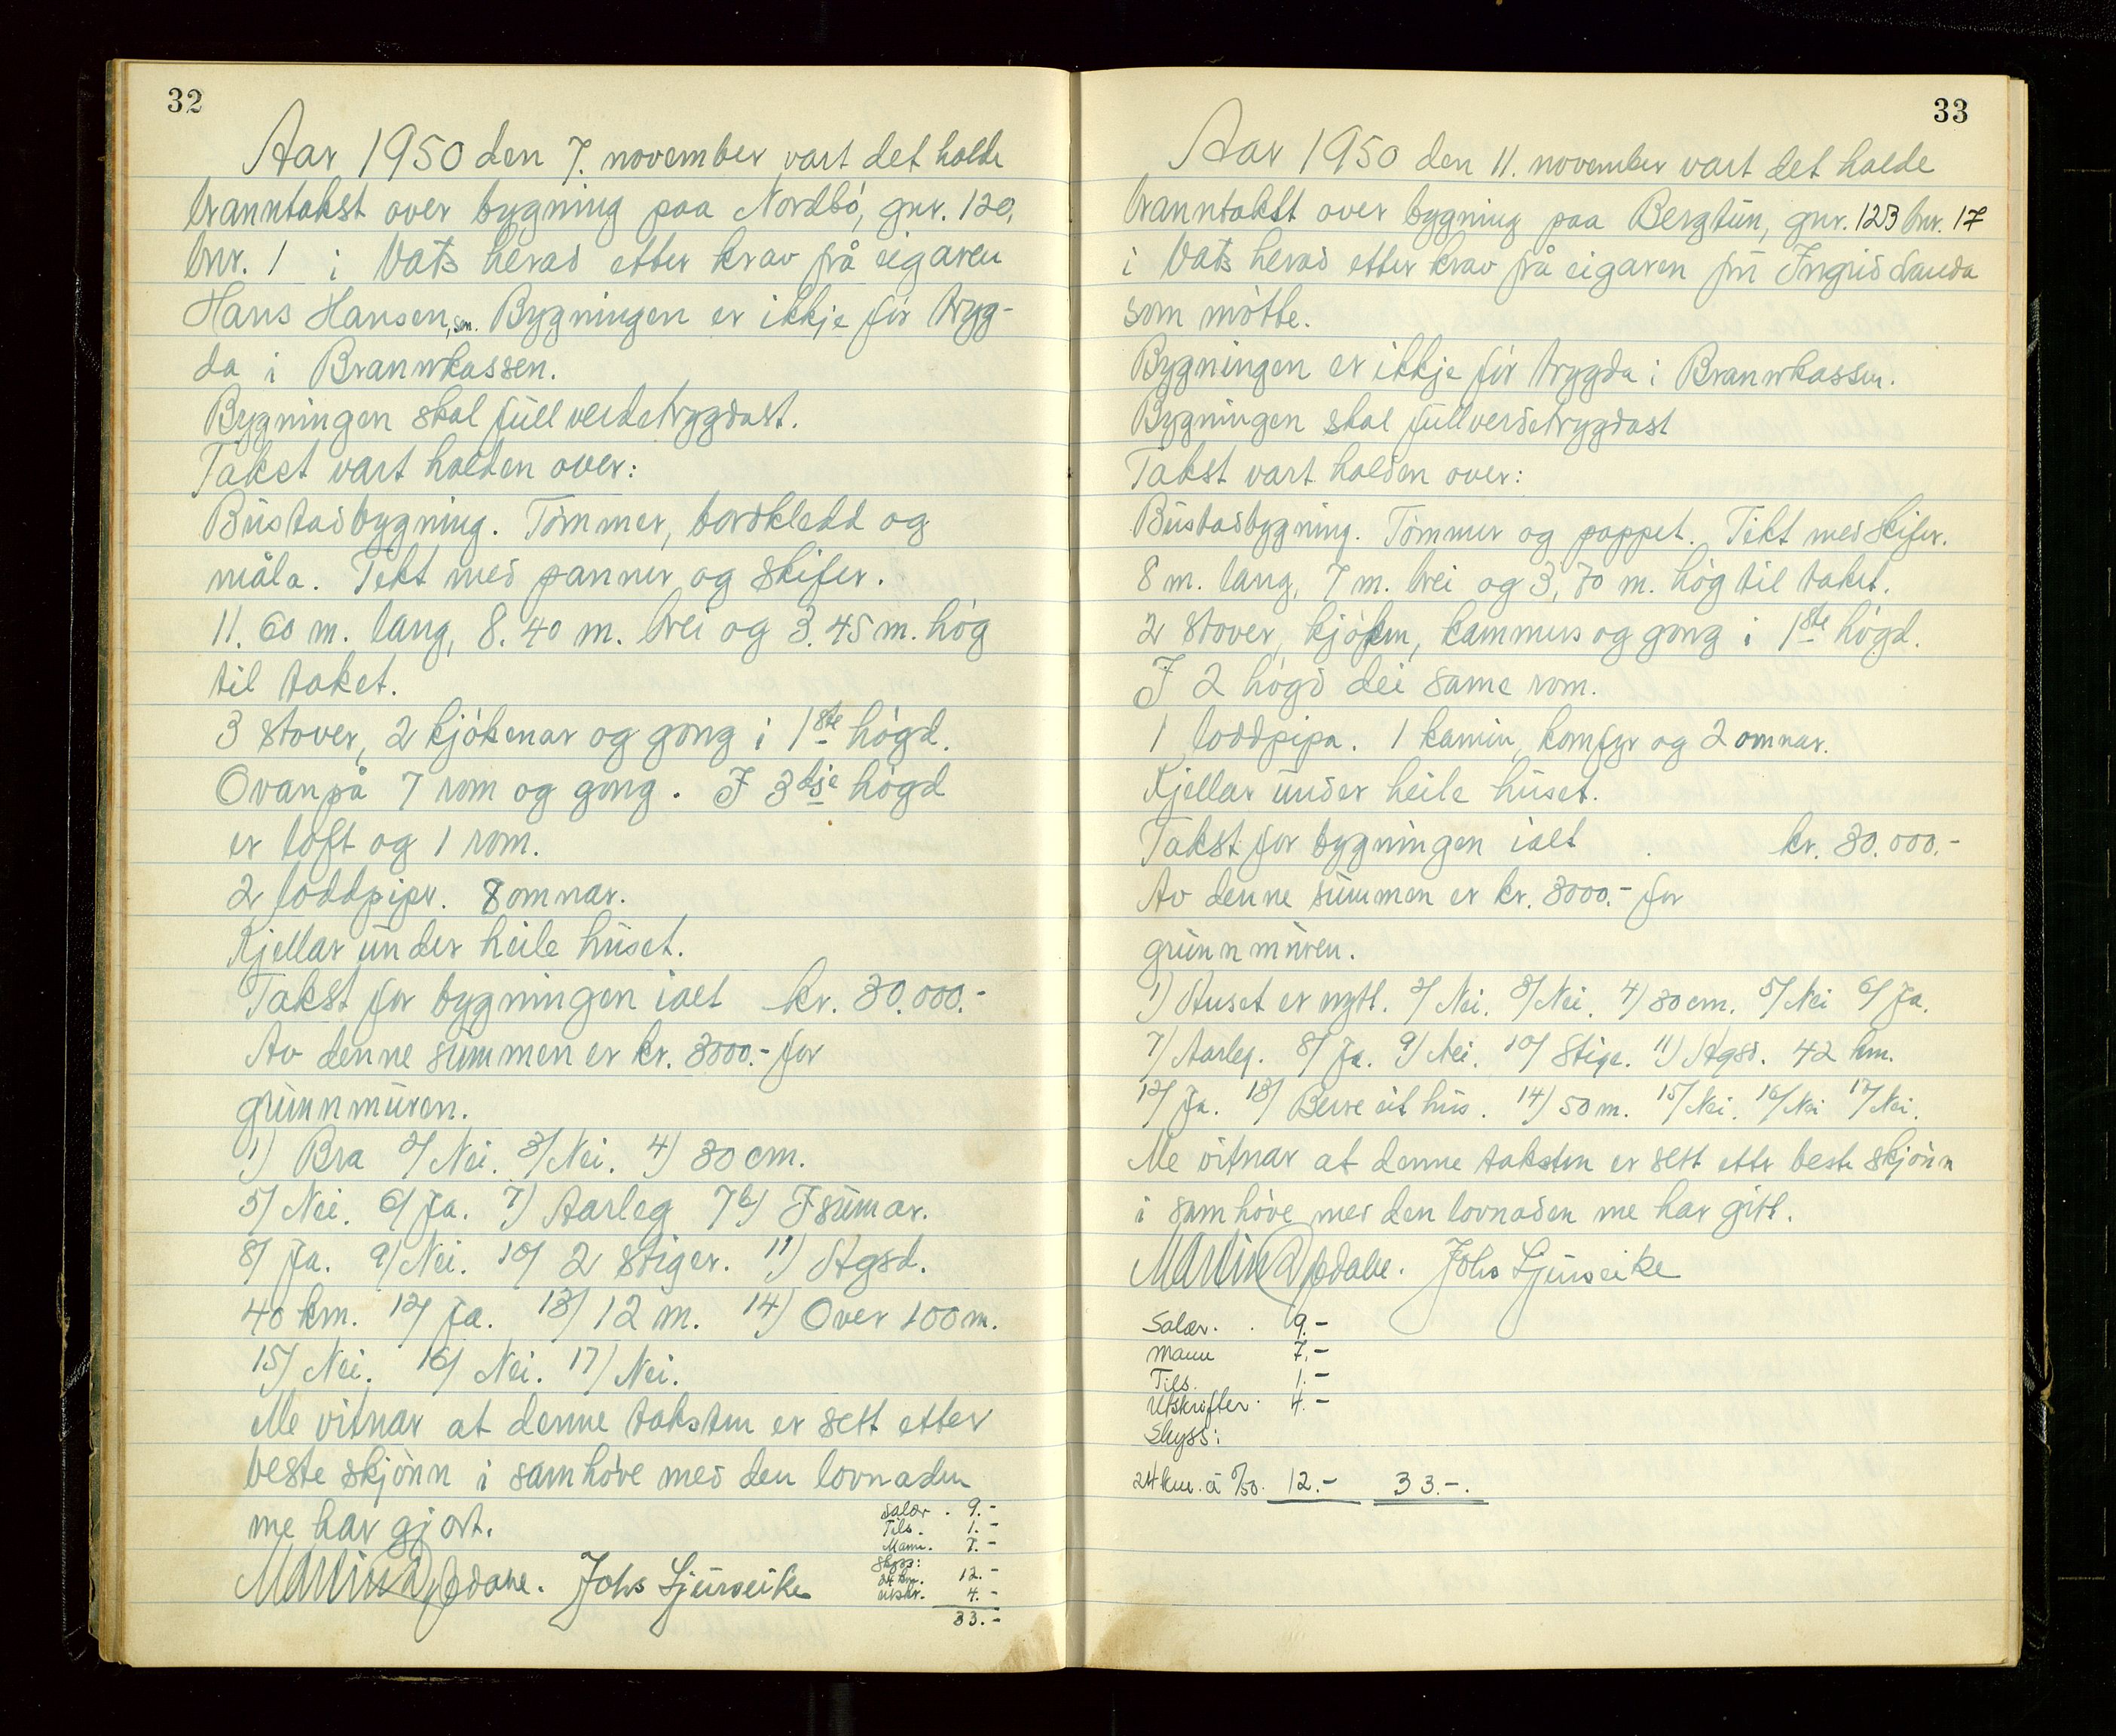 32
Aar 1950 den 7. november vart det halde
branntakst over bygning paa Nordbö, gnr. 120,
bnr. 1 i Vats herad etter krav frå eigaren
Hans Hansen, sen. Bygningen er ikkje för tryg-
da i Brannkassen.
Bygningen skal fullverdetrygdast.
Takst vart halden over:
Bustadbygning. Tömmer, bordkledd og
måla. Tekt med panner og skifer.
11.60 m. lang, 8.40 m. brei og 3.45 m. hög
til taket.
3 stover, 2 kjökenar og gong i 1ste högd.
Ovanpå 7 rom og gong. I 3dje högd
er loft og 1 rom.
2 loddpipr. 8 omnar.
Kjellar under heile huset.
Takst for bygningen ialt kr. 30.000.-
Av denne summen er kr. 3000.- for
grunnmuren.
1) Bra 2/ Nei. 3/ Nei. 4) 30 cm.
5/ Nei. 6/ Ja. 7) Aarleg 7b) I sumar.
8/ Ja. 9/ Nei. 10/ 2 stiger. 11) Hgsd.
40 km. 12/ Ja. 13) 12 m. 14) Over 100 m.
15/ Nei. 16/ Nei. 17) Nei.
Me vitnar at denne taksten er sett etter
beste skjönn i samhöve med den lovnaden
me har gjort.
Salær . 9.-
Tils. 1.-
Mann. 7.-
Skyss:
24 km. 12.-
Utskr. 4.-
33.-
Martin Opdahe. Johs Ljunseike
33
Aar 1950 den 11. november vart det halde
branntakst over bygning paa Bergtun, gnr. 123 bnr. 17
i Vats herad etter krav frå eigaren fru Ingrid Sanda
som mötte.
Bygningen er ikkje för trygda i Brannkassen.
Bygningen skal fullverdetrygdast
Takst vart halden over:
Bustadbygning. Tömmer og pappet. Tekt med skifer.
8 m. lang, 7 m. brei og 3,70 m. hög til taket.
2 stover, kjöken, kammers og gong i 1ste högd.
I 2 högd dei same rom.
1 loddpipa. 1 kamin, komfyr og 2 omnar.
Kjellar under heile huset.
Takst for bygningen ialt kr. 30.000.-
Av denne summen er kr. 3000.- for
grunnmuren.
1) Huset er nytt. 2/ Nei. 3/ Nei. 4) 30 cm. 5/ Nei 6/ Ja.
7/ Aarleg. 8/ Ja. 9/ Nei. 10/ Stige. 11) Hgsd. 42 km.
12/ Ja. 13/ Berre eit hus. 14) 50 m. 15/ Nei. 16/ Nei 17/ Nei.
Me vitnar at denne taksten er sett etter beste skjönn
i samhöve med den lovnaden me har gitt.
Martin Opdahe. Johs Ljunseike
Salær. . 9.-
Mann 7.-
Tils. 1.-
Utskrifter. 4.-
Skyss:
24 km. á 0/50. 12.- 33.-.